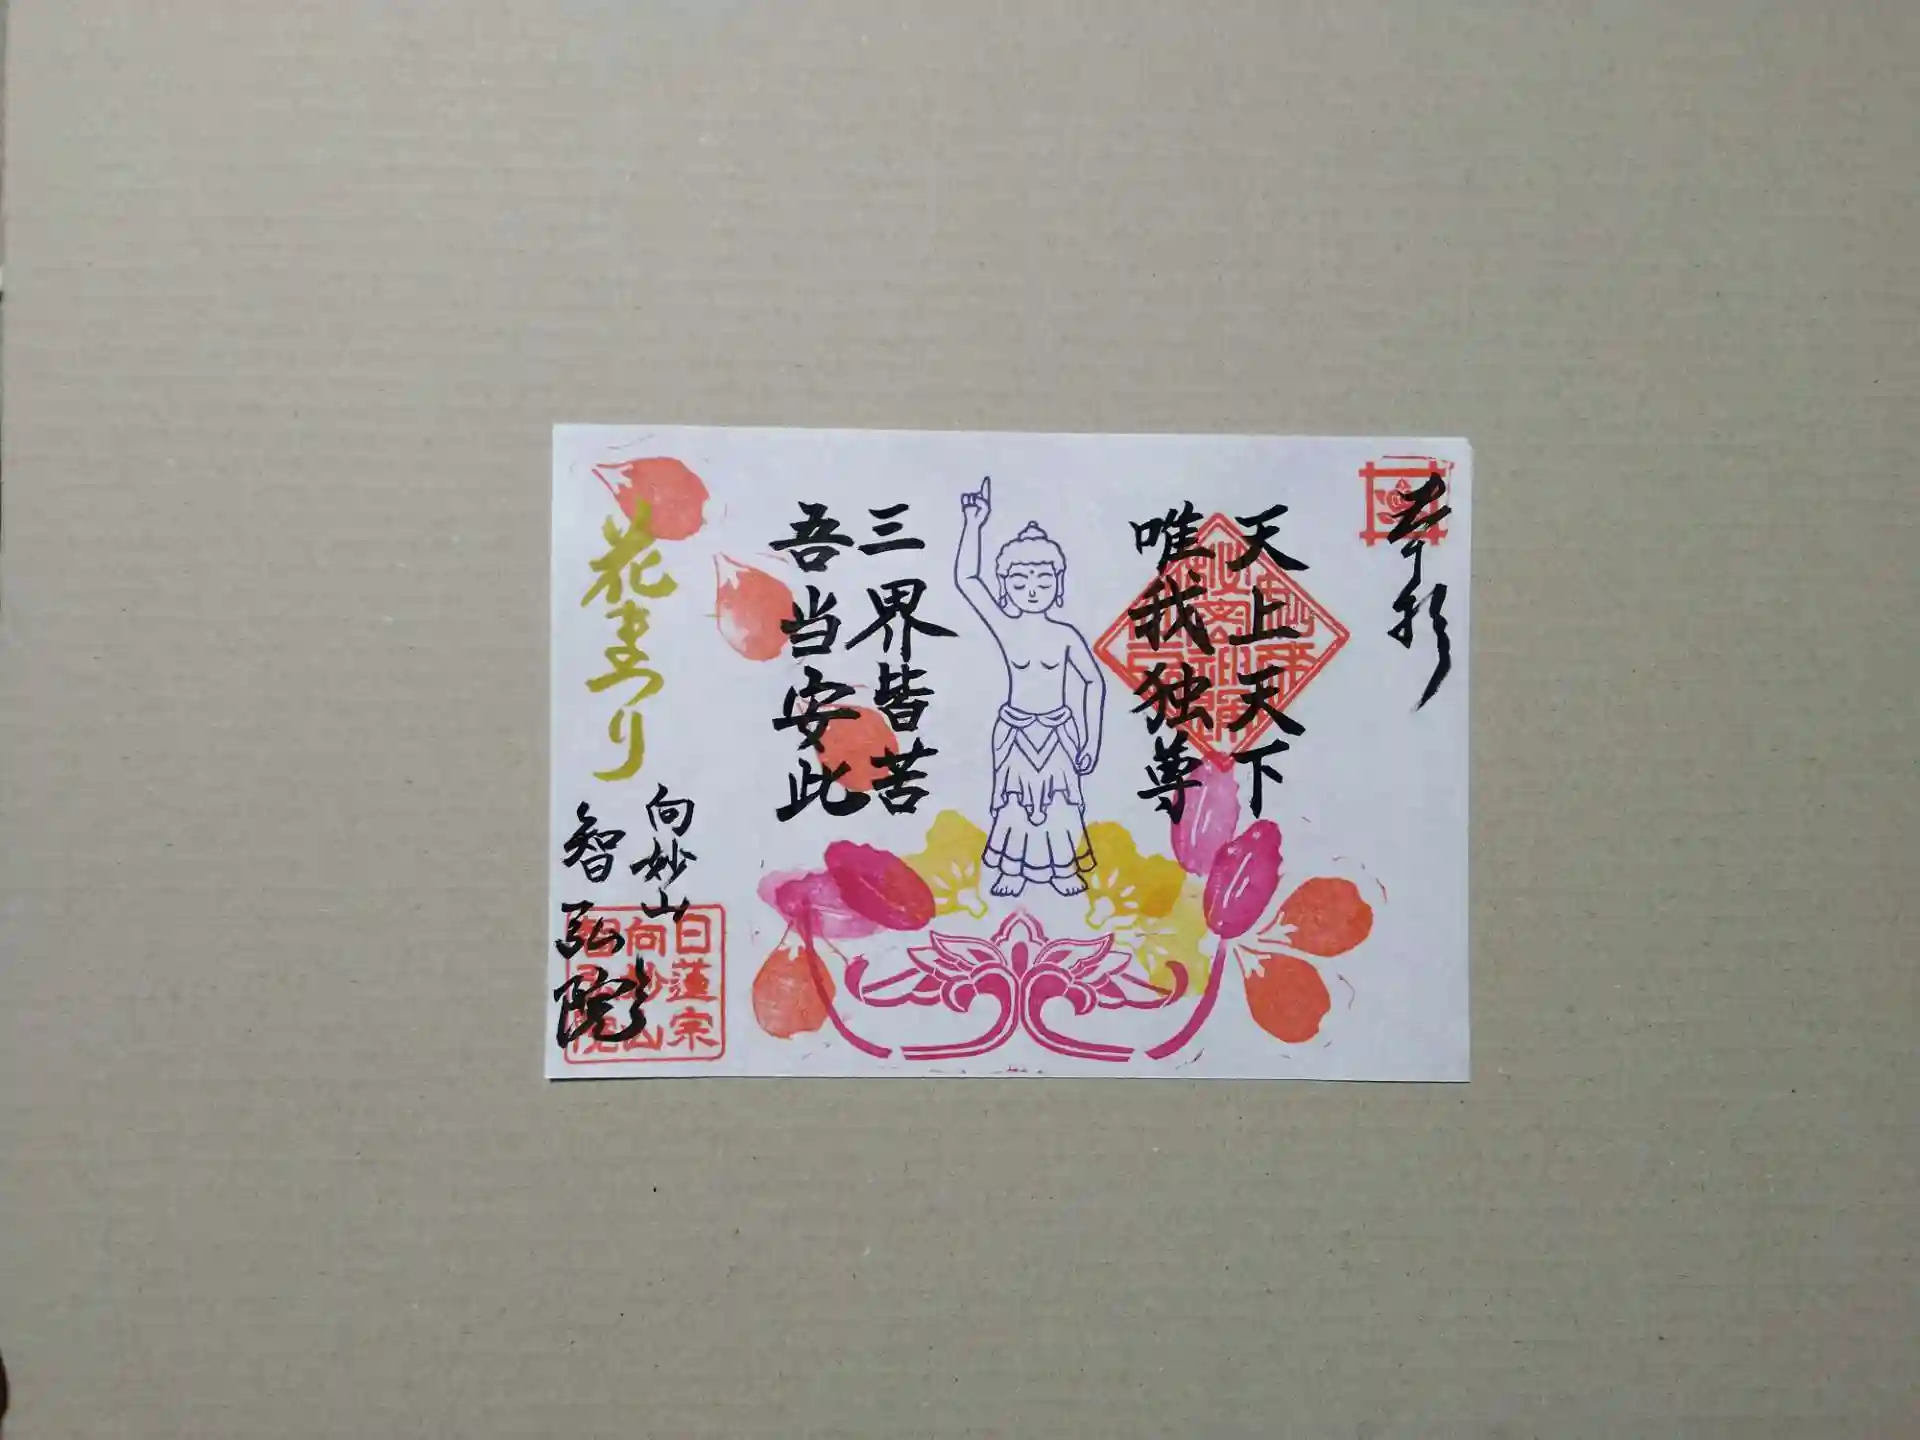 奉拝
天上天下
唯我独尊
三界皆苦
吾当安此
花まつり
向妙山
智弘院
日蓮宗
向妙山
智弘院